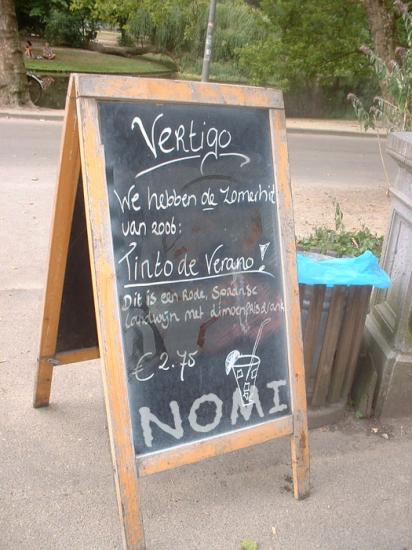 Vertigo
We hebben de Zomerhit
van 2006:
Tinto de Verano!
Dit is een Rode, Spaanse
landwijn met limoenfrisdrank
€ 2.75
NOMI